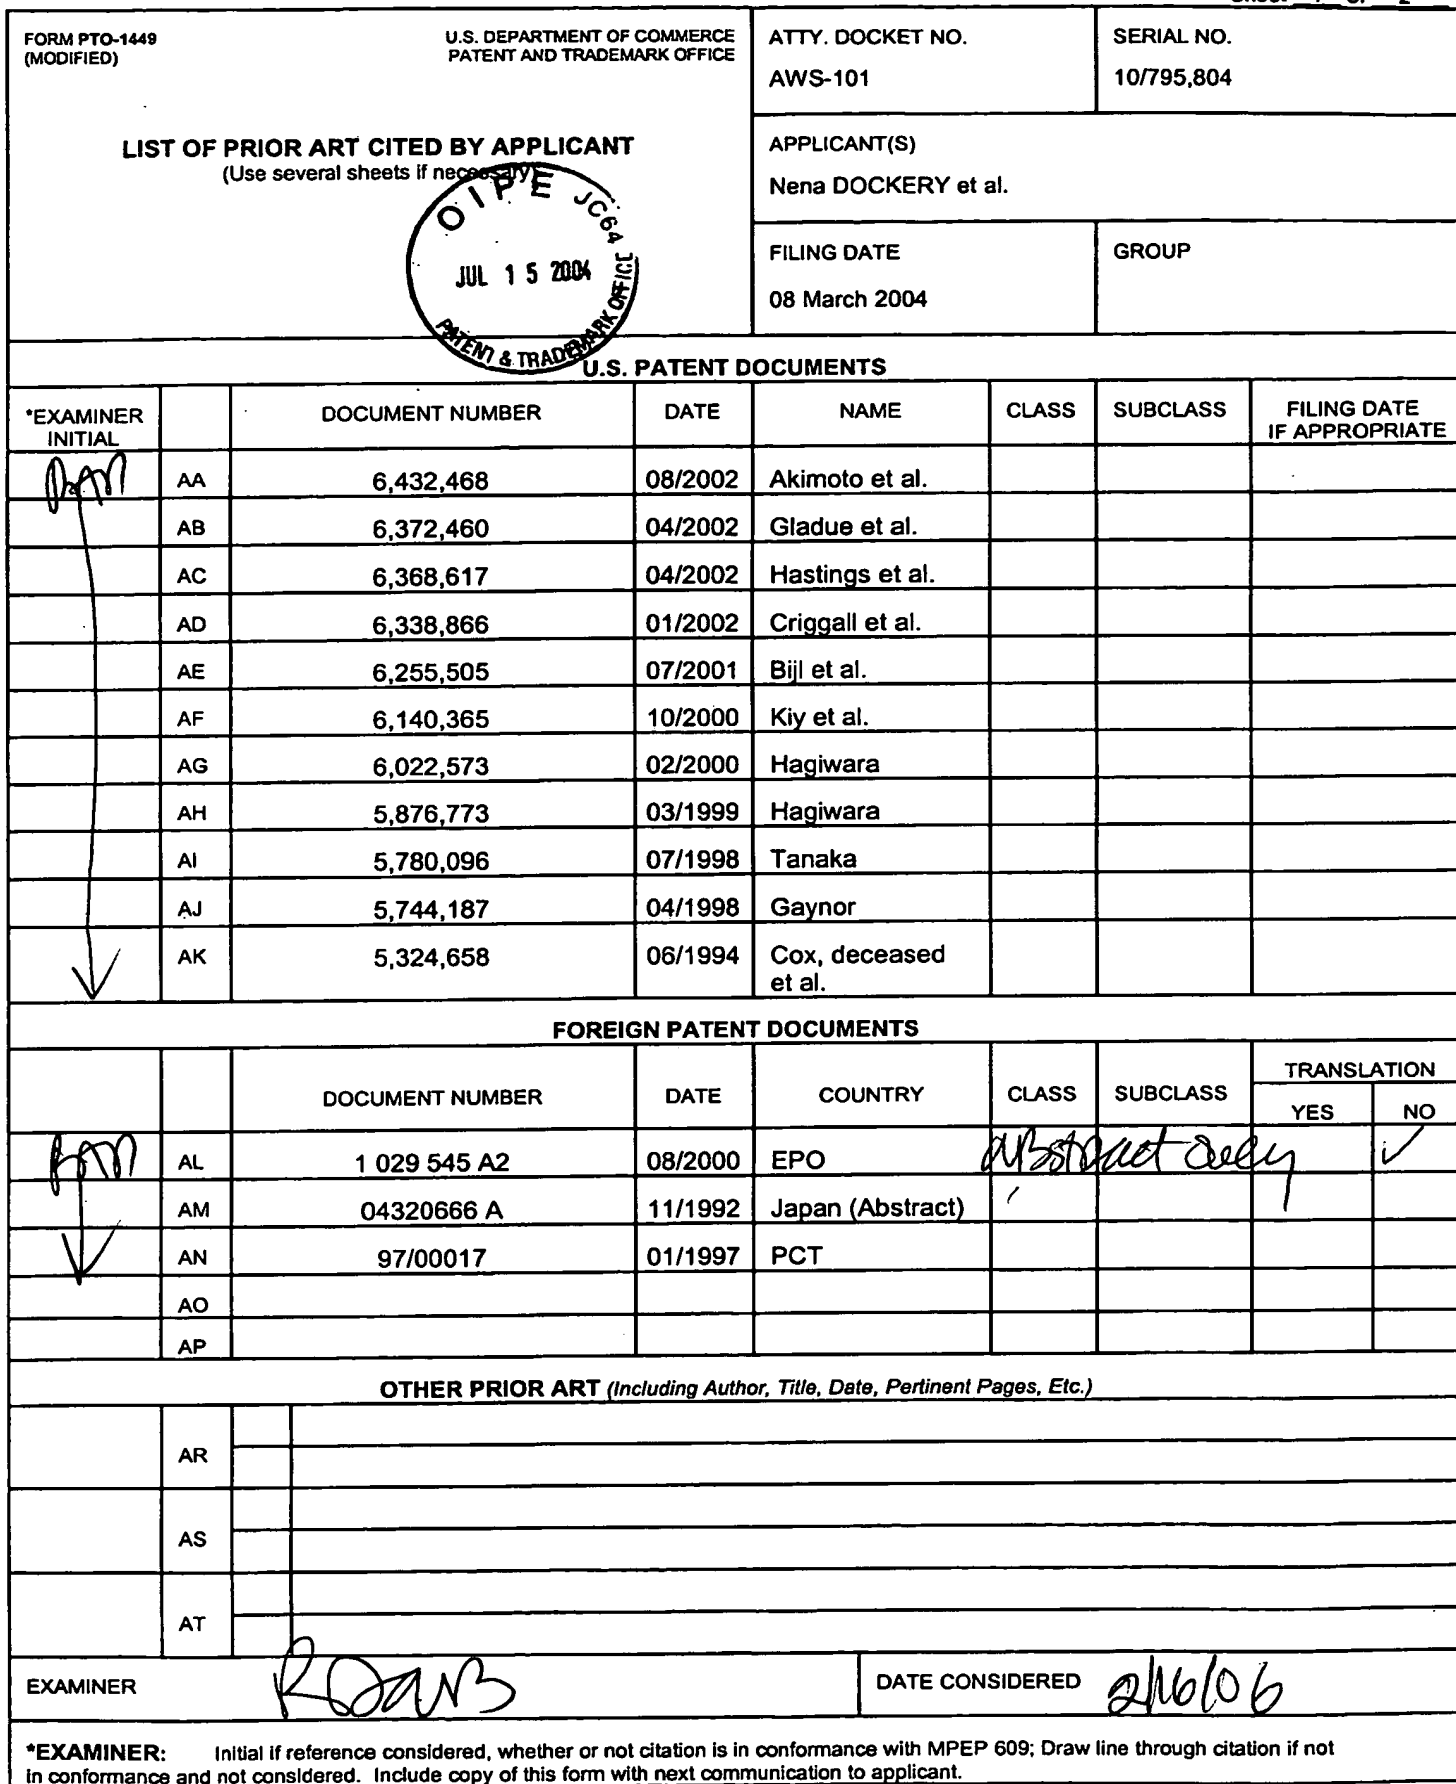 FORM PTO-1449
(MODIFIED)
U.S. DEPARTMENT OF COMMERCE
PATENT AND TRADEMARK OFFICE
ATTY. DOCKET NO.
AWS-101
SERIAL NO.
10/795,804
LIST OF PRIOR ART CITED BY APPLICANT
(Use several sheets if necessary)
OIPE JC64
JUL 15 2004
PATENT & TRADEMARK OFFICE
APPLICANT(S)
Nena DOCKERY et al.
FILING DATE
08 March 2004
GROUP
U.S. PATENT DOCUMENTS
*EXAMINER INITIAL DOCUMENT NUMBER DATE NAME CLASS SUBCLASS FILING DATE IF APPROPRIATE
AA 6,432,468 08/2002 Akimoto et al.
AB 6,372,460 04/2002 Gladue et al.
AC 6,368,617 04/2002 Hastings et al.
AD 6,338,866 01/2002 Criggall et al.
AE 6,255,505 07/2001 Bijl et al.
AF 6,140,365 10/2000 Kiy et al.
AG 6,022,573 02/2000 Hagiwara
AH 5,876,773 03/1999 Hagiwara
AI 5,780,096 07/1998 Tanaka
AJ 5,744,187 04/1998 Gaynor
AK 5,324,658 06/1994 Cox, deceased
et al.
FOREIGN PATENT DOCUMENTS
DOCUMENT NUMBER DATE COUNTRY CLASS SUBCLASS TRANSLATION
YES NO
AL 1 029 545 A2 08/2000 EPO Abstract only ✓
AM 04320666 A 11/1992 Japan (Abstract)
AN 97/00017 01/1997 PCT
AO
AP
OTHER PRIOR ART (Including Author, Title, Date, Pertinent Pages, Etc.)
AR
AS
AT
EXAMINER
DATE CONSIDERED 2/16/06
*EXAMINER: Initial if reference considered, whether or not citation is in conformance with MPEP 609; Draw line through citation if not
in conformance and not considered. Include copy of this form with next communication to applicant.